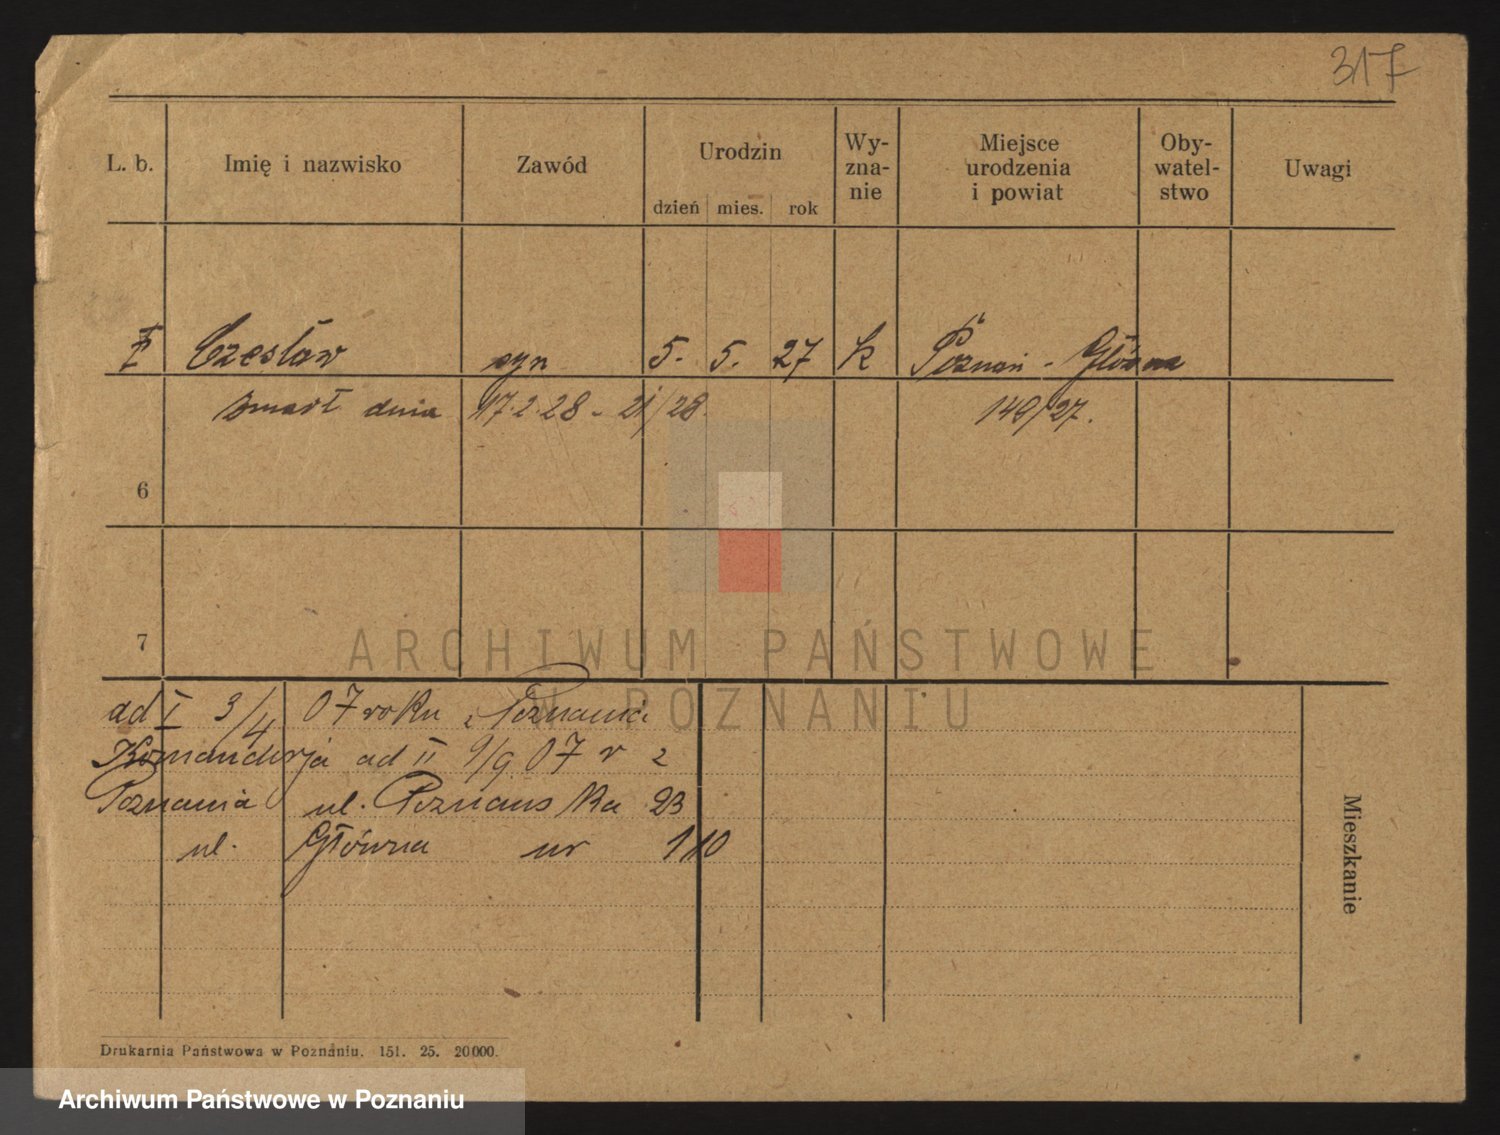 317
L. b. Imię i nazwisko Zawód Urodzin dzień mies. rok Wy-zna-nie Miejsce urodzenia i powiat Oby-watel-stwo Uwagi
Czesław syn 5. 5. 27 k Poznań - Główna
zmarł dnia 17.2.28 - 21/28. 149/27.
6
7
ARCHIWUM PAŃSTWOWE
W POZNANIU
ad I 3/4 07 roku z Poznania
Komanderja ad II 9/9 07 r z
Poznania ul. Poznanska 23
ul. Główna nr 110
Mieszkanie
Drukarnia Państwowa w Poznaniu. 151. 25. 20000.
Archiwum Państwowe w Poznaniu